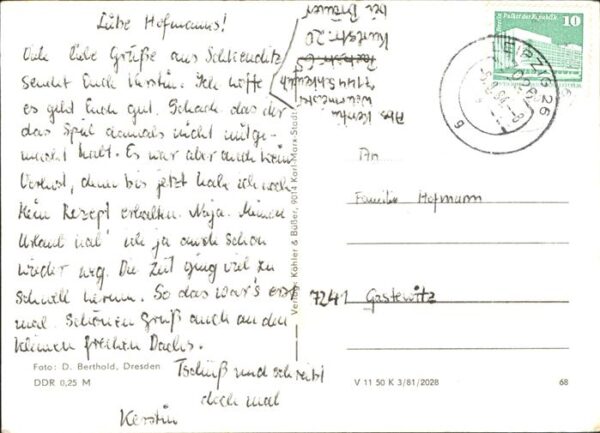 Liebe Hofmanns!
Viele liebe Grüße aus Schkeuditz
sendet Euch Kerstin. Ich hoffe
es geht Euch gut. Schade das ihr
das Spiel damals nicht mitge-
macht habt. Es war aber auch kein
Verlust, denn bis jetzt habe ich noch
kein Rezept erhalten. Naja. Meinen
Urlaub hab' ich ja auch schon
wieder weg. Die Zeit ging viel zu
schnell herum. So das war's erst
mal. Schönen Gruß auch an den
kleinen frechen Dachs.
Tschüß und schreibt
doch mal
Kerstin
Foto: D. Berthold, Dresden
DDR 0,25 M
Verlag: Köhler & Büßer, 9014 Karl-Marx-Stadt
Abs. Kerstin
7144 Schkeuditz
Kurtstr. 20
bei Bräuer
Berlin Palast der Republik
10
DDR
LEIPZIG 26
An
Familie Hofmann
7241 Gastewitz
V 11 50 K 3/81/2028
68